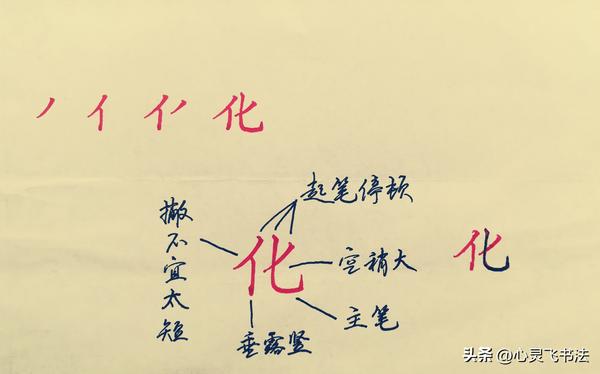 丿 亻 亻丿 化
起笔停顿
撇不宜太短
化
空稍大
化
主笔
垂露竖
头条 @心灵飞书法